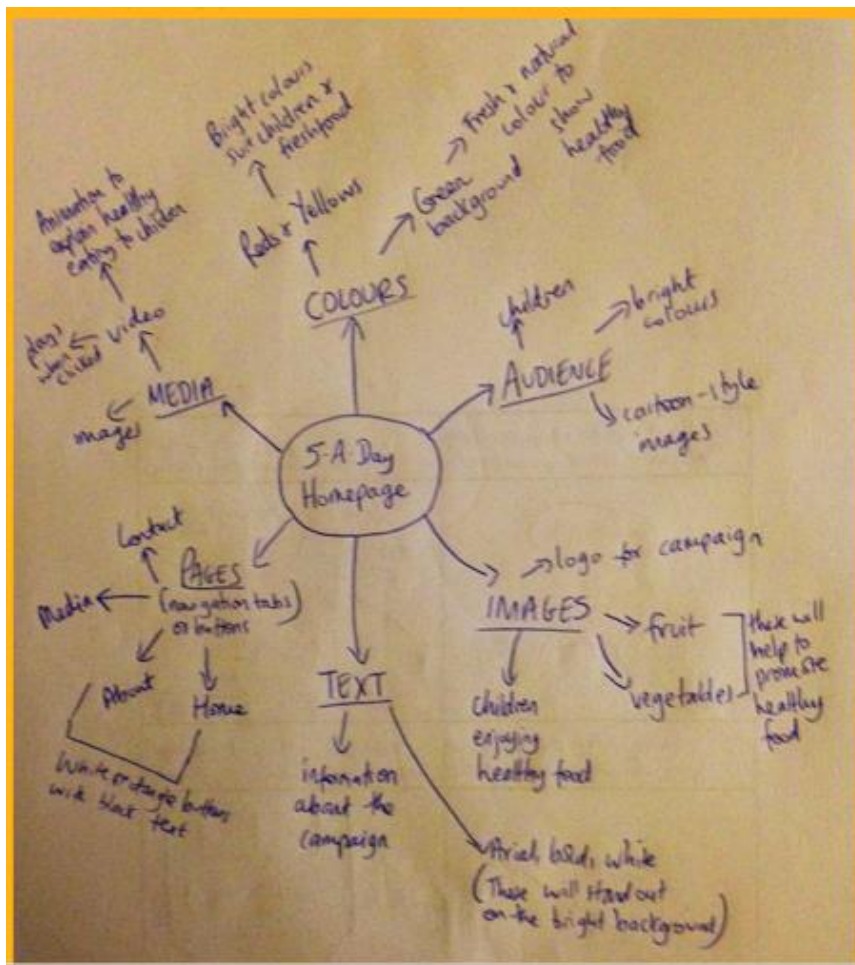 5-A-Day
Homepage
COLOURS
Reds & Yellows
Bright colours
suit children &
fresh food
Green
background
Fresh & natural
colour to
show
healthy
food
AUDIENCE
children
bright
colours
cartoon-style
images
IMAGES
logo for campaign
fruit
vegetables
these will
help to
promote
healthy
food
children
enjoying
healthy food
TEXT
information
about the
campaign
Arial, bold, white
(These will stand out
on the bright background)
PAGES
(navigation tabs)
or buttons
Contact
Media
About
Home
White or orange buttons
with black text
MEDIA
images
video
plays
when
clicked
Animation to
explain healthy
eating to children